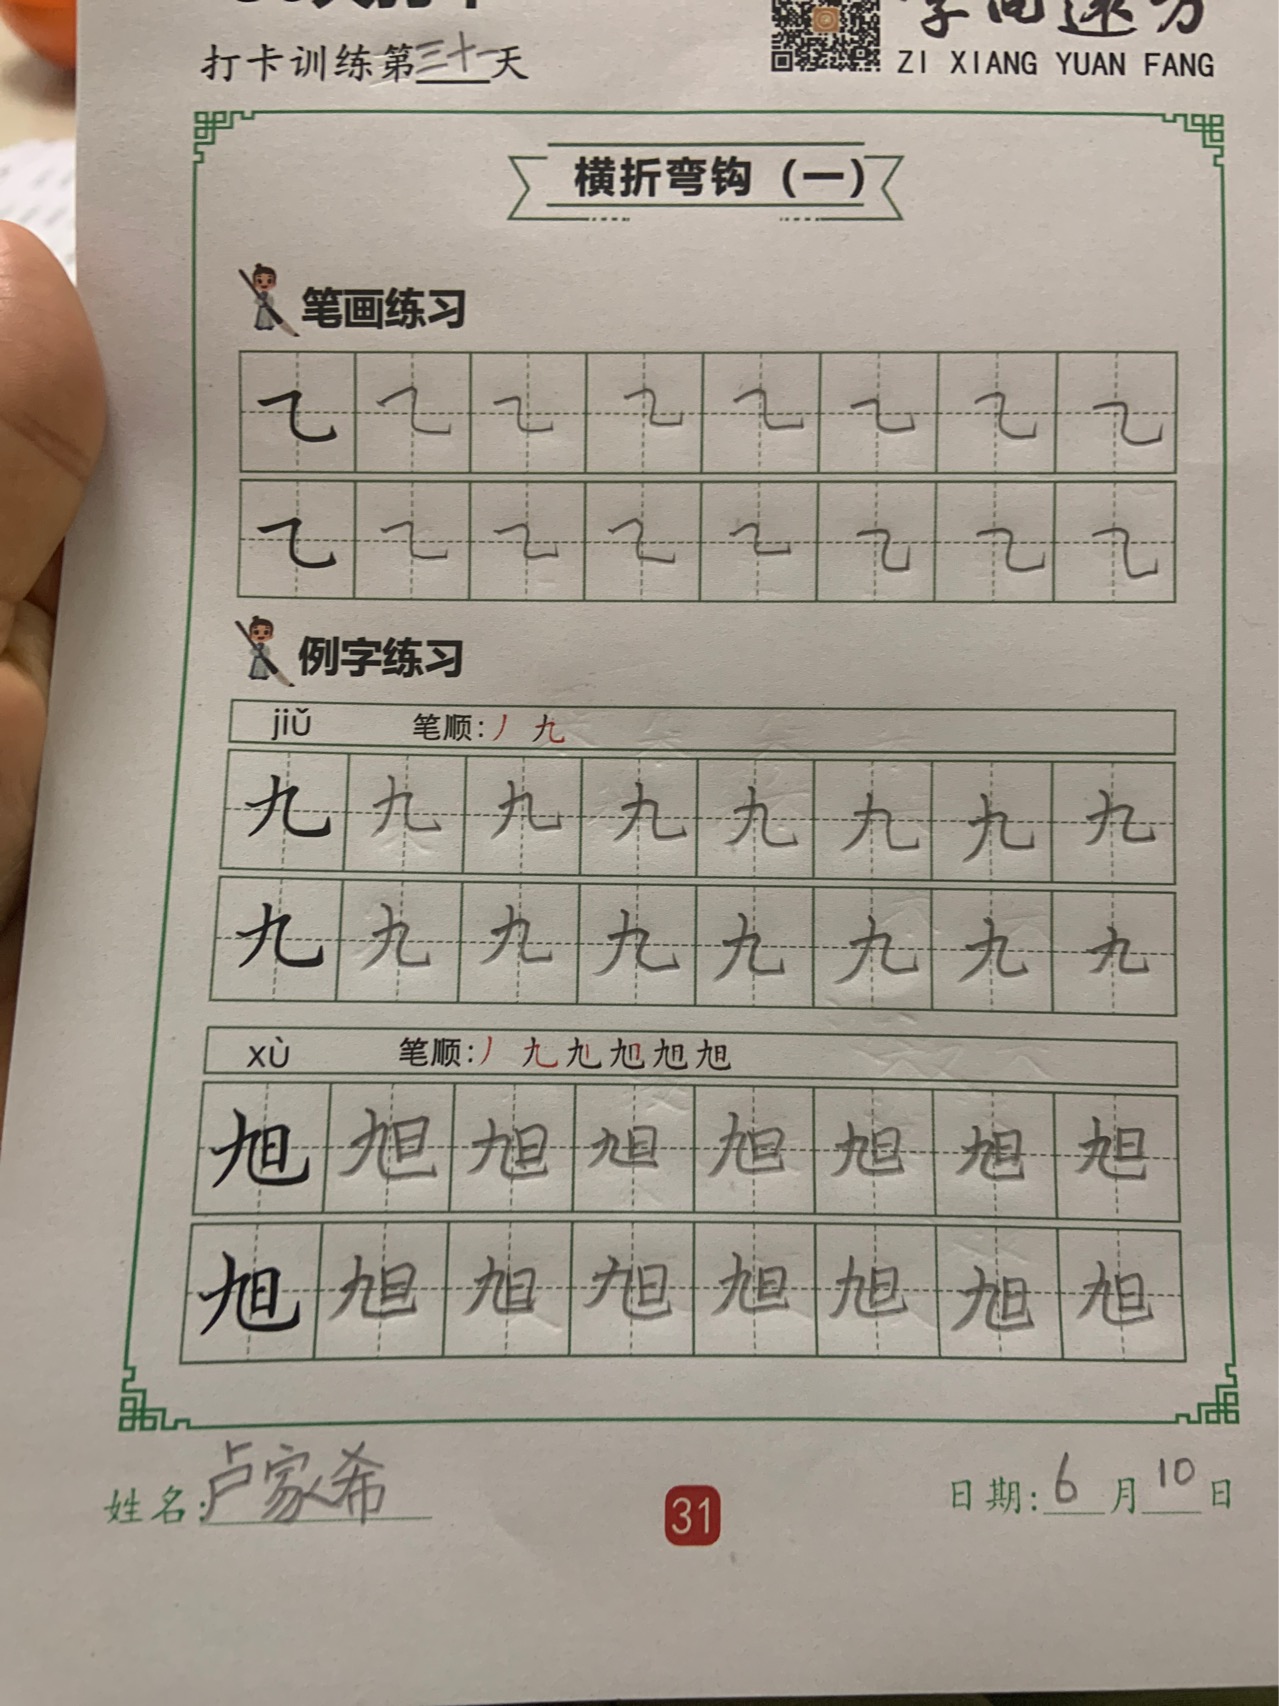 打卡训练第三十一天
ZI XIANG YUAN FANG
横折弯钩（一）
笔画练习
㇈ ㇈ ㇈ ㇈ ㇈ ㇈ ㇈ ㇈
㇈ ㇈ ㇈ ㇈ ㇈ ㇈ ㇈ ㇈
例字练习
jiǔ 笔顺：丿 九
九 九 九 九 九 九 九 九
九 九 九 九 九 九 九 九
xù 笔顺：丿 九 旭 旭 旭 旭
旭 旭 旭 旭 旭 旭 旭 旭
旭 旭 旭 旭 旭 旭 旭 旭
姓名：卢家希
31
日期：6月10日